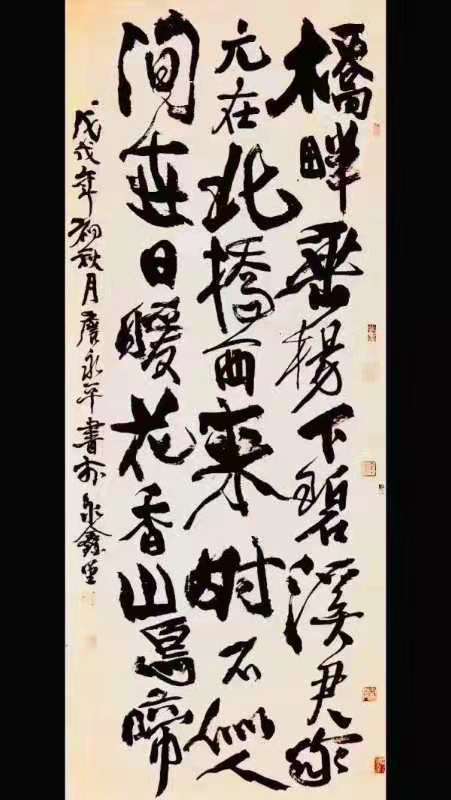 橋畔垂楊下碧溪君家
元在北橋西來時不似人
間世日暖花香山鳥啼
戊戌年初秋月永平書於泉鑫堂